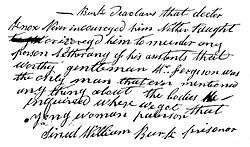 Burk deaclars that docter
Knox Never incoureged him Nither taught
or incoreged him to murder any
person Nether any of his asistents that
worthy gentleman Mr. Fergeson was
the only man that ever mentioned
any thing about the bodies He
inquired where we got that
yong woman paterson
Sined William Burk prisoner